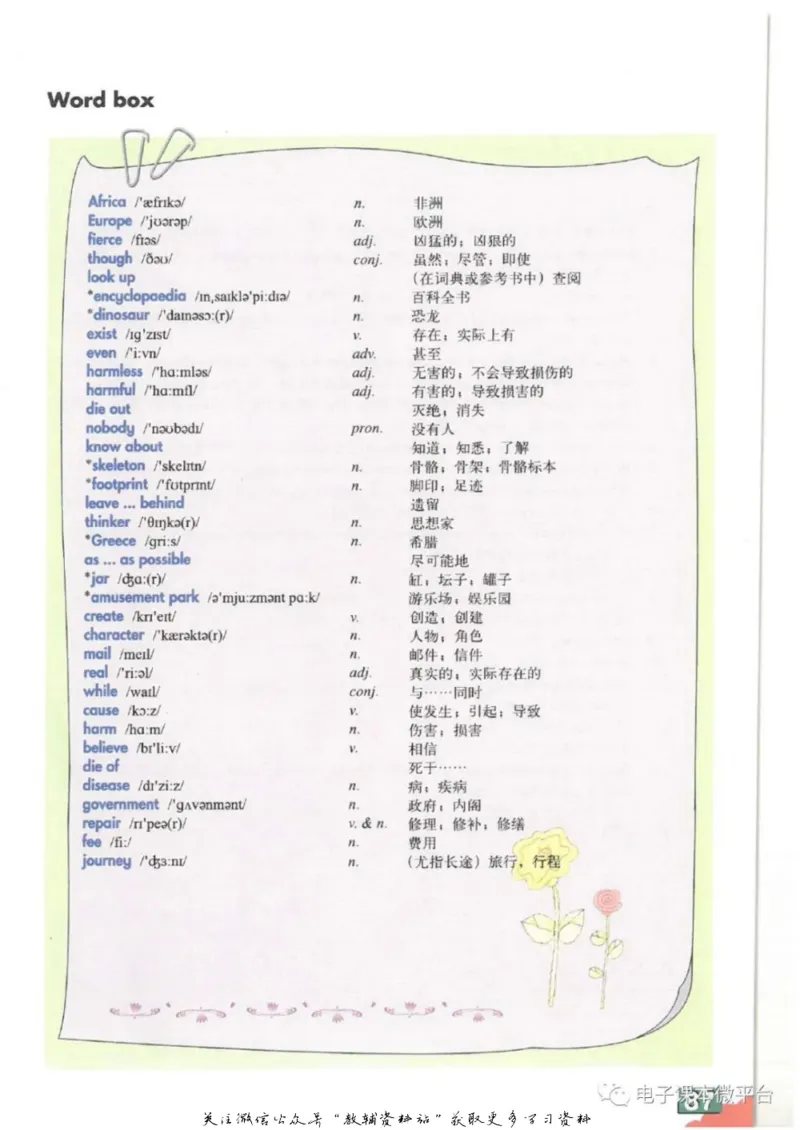 Word box
Africa /'æfrɪkə/ n. 非洲
Europe /'jʊərəp/ n. 欧洲
fierce /fɪəs/ adj. 凶猛的；凶狠的
though /ðəʊ/ conj. 虽然；尽管；即使
look up (在词典或参考书中) 查阅
*encyclopaedia /ɪnˌsaɪklə'pi:dɪə/ n. 百科全书
*dinosaur /'daɪnəsɔ:(r)/ n. 恐龙
exist /ɪg'zɪst/ v. 存在；实际上有
even /'i:vn/ adv. 甚至
harmless /'hɑ:mləs/ adj. 无害的；不会导致损伤的
harmful /'hɑ:mfl/ adj. 有害的；导致损害的
die out 灭绝；消失
nobody /'nəʊbədɪ/ pron. 没有人
know about 知道；知悉；了解
*skeleton /'skelɪtn/ n. 骨骼；骨架；骨骼标本
*footprint /'fʊtprɪnt/ n. 脚印；足迹
leave ... behind 遗留
thinker /'θɪŋkə(r)/ n. 思想家
*Greece /gri:s/ n. 希腊
as ... as possible 尽可能地
*jar /dʒɑ:(r)/ n. 缸；坛子；罐子
*amusement park /ə'mju:zmənt pɑ:k/ 游乐场；娱乐园
create /krɪ'eɪt/ v. 创造；创建
character /'kærəktə(r)/ n. 人物；角色
mail /meɪl/ n. 邮件；信件
real /'ri:əl/ adj. 真实的；实际存在的
while /waɪl/ conj. 与……同时
cause /kɔ:z/ v. 使发生；引起；导致
harm /hɑ:m/ n. 伤害；损害
believe /bɪ'li:v/ v. 相信
die of 死于……
disease /dɪ'zi:z/ n. 病；疾病
government /'gʌvənmənt/ n. 政府；内阁
repair /rɪ'peə(r)/ v. & n. 修理；修补；修缮
fee /fi:/ n. 费用
journey /'dʒɜ:nɪ/ n. (尤指长途) 旅行，行程
电子课本微平台
87
关注微信公众号“教辅资料站”获取更多学习资料